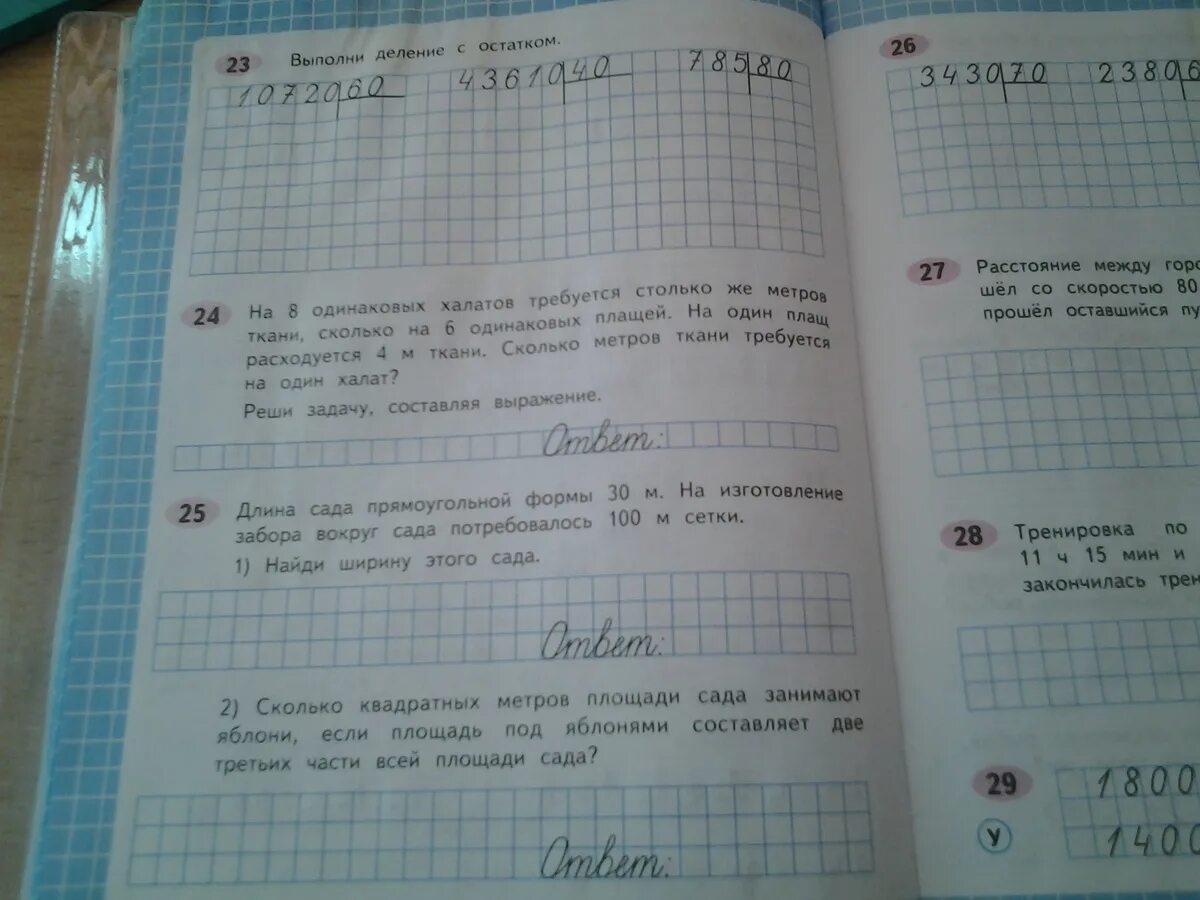 23 Выполни деление с остатком.
10720 60 43610 40 785 80
24 На 8 одинаковых халатов требуется столько же метров
ткани, сколько на 6 одинаковых плащей. На один плащ
расходуется 4 м ткани. Сколько метров ткани требуется
на один халат?
Реши задачу, составляя выражение.
Ответ:
25 Длина сада прямоугольной формы 30 м. На изготовление
забора вокруг сада потребовалось 100 м сетки.
1) Найди ширину этого сада.
Ответ:
2) Сколько квадратных метров площади сада занимают
яблони, если площадь под яблонями составляет две
третьих части всей площади сада?
Ответ:
26
3430 70 2380 6
27 Расстояние между горо
шёл со скоростью 80
прошёл оставшийся пу
28 Тренировка по
11 ч 15 мин и
закончилась трен
29 1800
У 1400